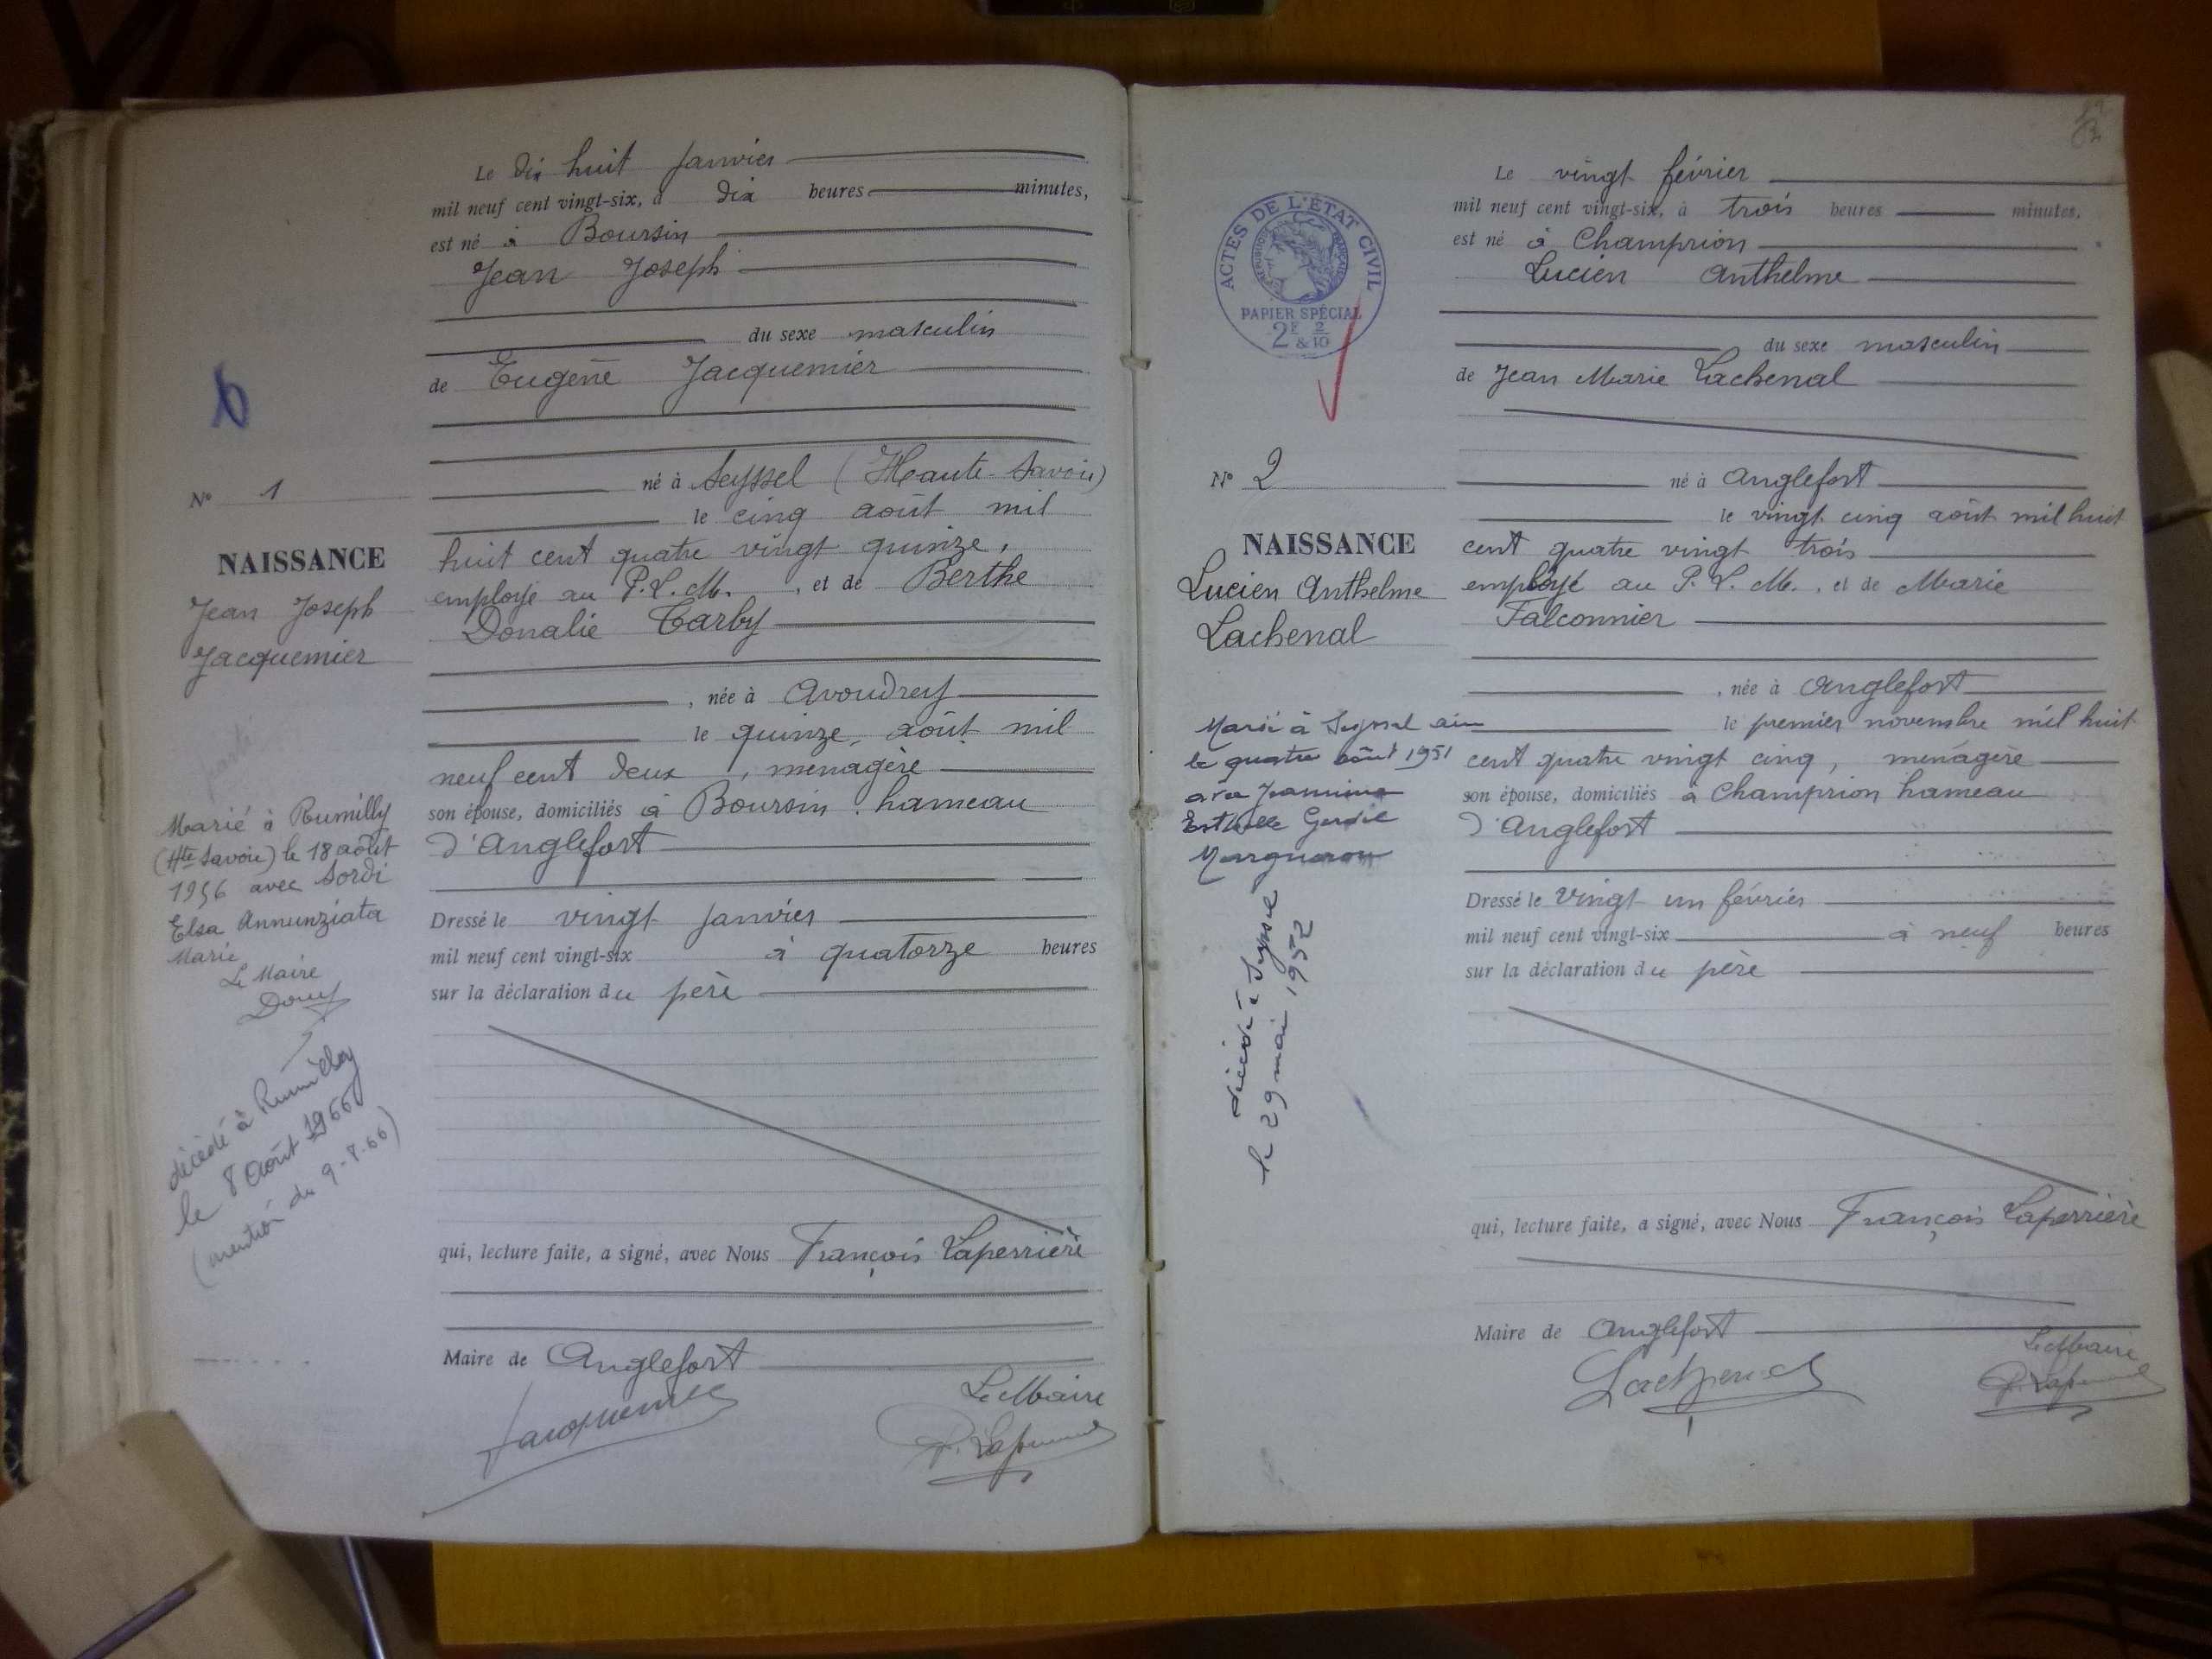 Le dix huit Janvier
mil neuf cent vingt-six, à dix heures minutes,
est né à Boursin
Jean Joseph
du sexe masculin
de Eugène Jacquemier
né à Seyssel (Haute-Savoie)
le cinq août mil
huit cent quatre vingt quinze,
employé au P.L.M. , et de Berthe
Donalie Carby
, née à Avoudrey
le quinze août mil
neuf cent deux , ménagère
son épouse, domiciliés à Boursin hameau
d'Anglefort
Dressé le vingt Janvier
mil neuf cent vingt-six à quatorze heures
sur la déclaration du père
qui, lecture faite, a signé, avec Nous François Laperrière
Maire de Anglefort
Jacquemier
Le Maire
F. Laperrière
6
N° 1
NAISSANCE
Jean Joseph
Jacquemier
parti
Marié à Rumilly
(Hte Savoie) le 18 août
1956 avec Sordi
Elsa Annunziata
Marie
Le Maire
décédé à Rumilly
le 8 août 1966
(mention du 9-8-66)
Le vingt février
mil neuf cent vingt-six, à trois heures minutes,
est né à Champrion
Lucien Anthelme
du sexe masculin
de Jean Marie Lachenal
né à Anglefort
le vingt cinq août mil huit
cent quatre vingt trois
employé au P.L.M. , et de Marie
Falconnier
, née à Anglefort
le premier novembre mil huit
cent quatre vingt cinq, ménagère
son épouse, domiciliés à Champrion hameau
d'Anglefort
Dressé le vingt un février
mil neuf cent vingt-six à neuf heures
sur la déclaration du père
qui, lecture faite, a signé, avec Nous François Laperrière
Maire de Anglefort
Lachenal
Le Maire
F. Laperrière
ACTES DE L'ÉTAT CIVIL
RÉPUBLIQUE FRANÇAISE
PAPIER SPÉCIAL
2F & 2/10
N° 2
NAISSANCE
Lucien Anthelme
Lachenal
Marié à Seyssel Ain
le quatre août 1951
avec Jeannine
Esthelle
décédé à Seyssel
le 29 mai 1952